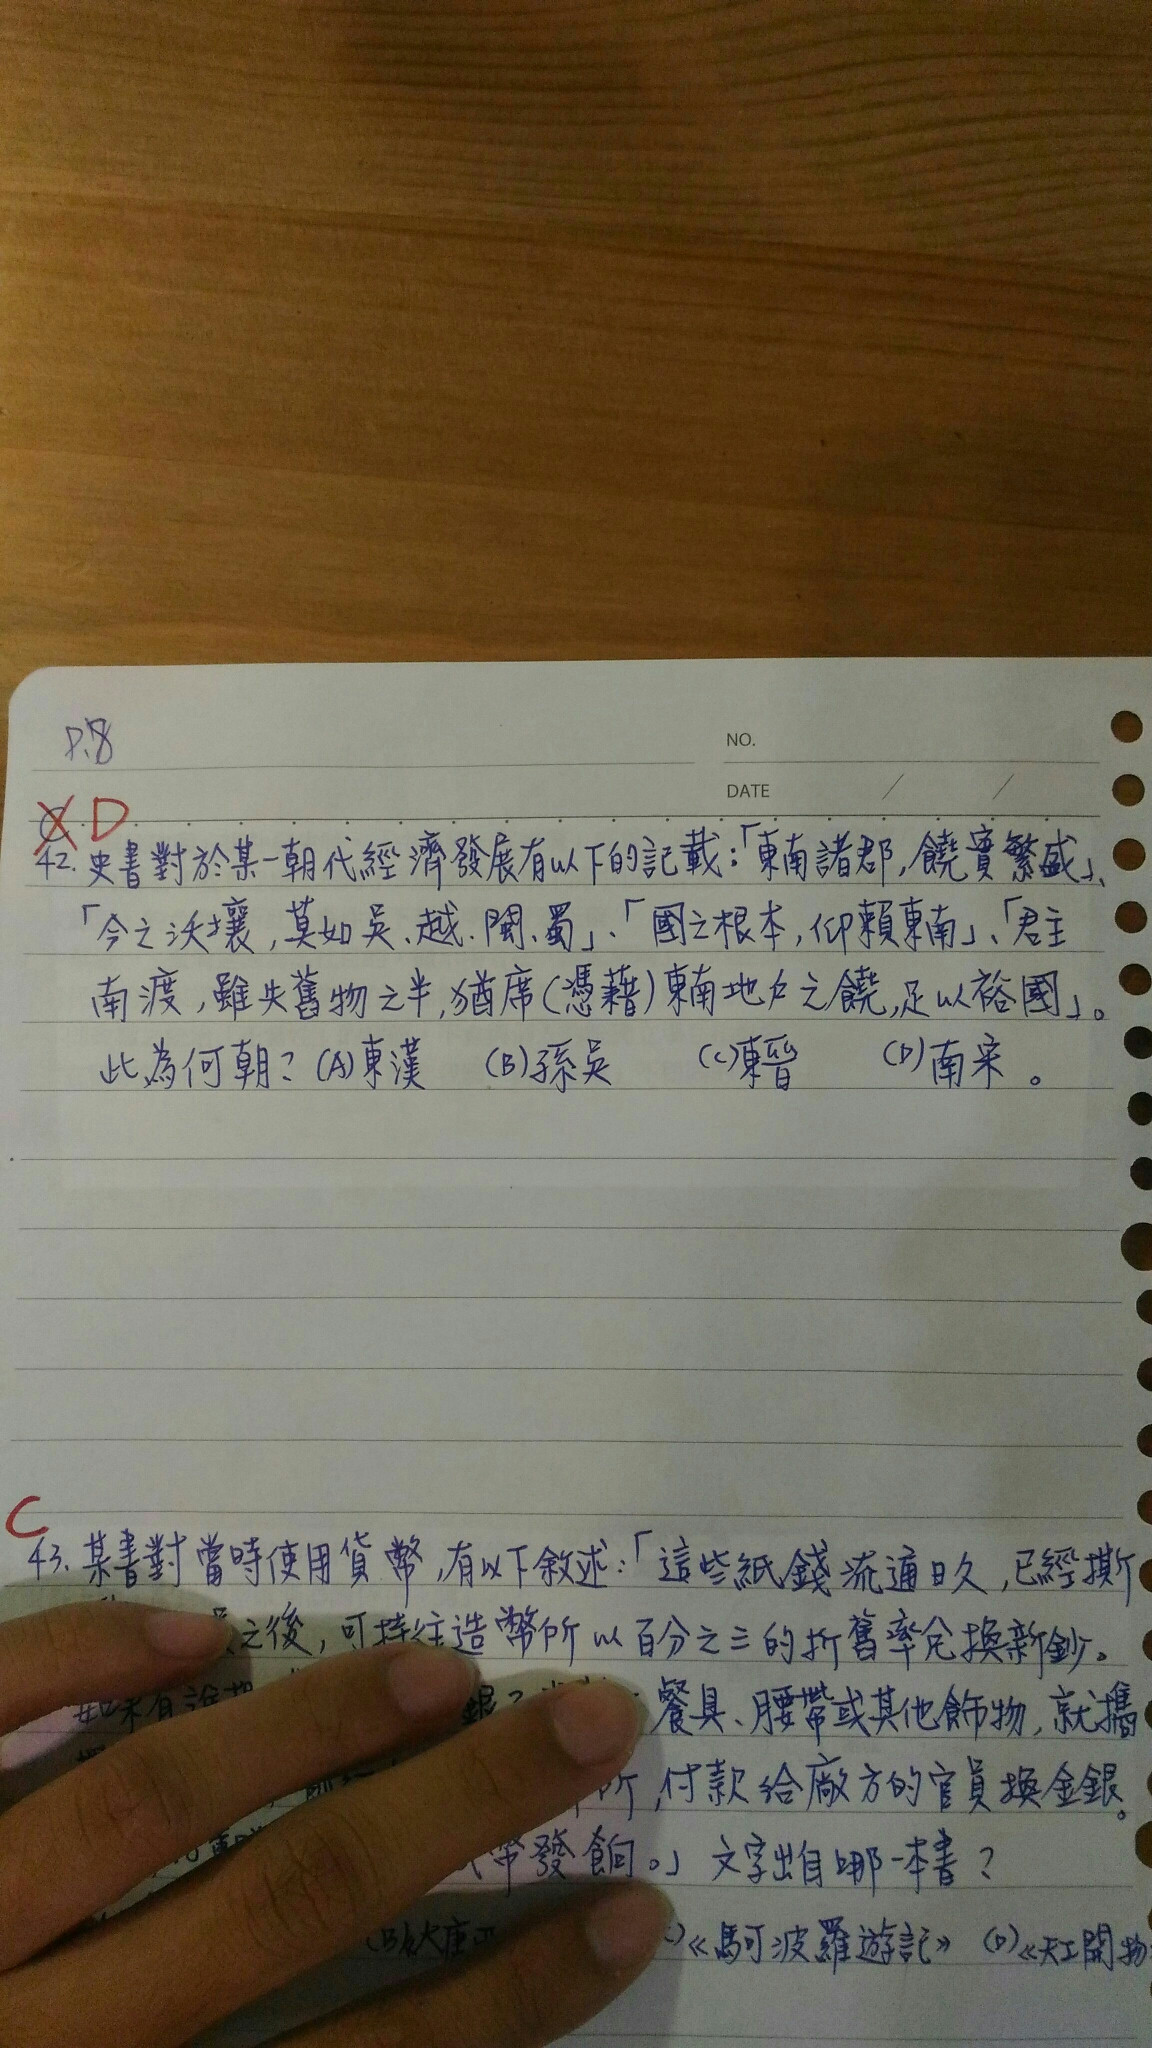 P.8
NO.
DATE / /
C D
42. 史書對於某一朝代經濟發展有以下的記載:「東南諸郡,饒實繁盛」、
「今之沃壤,莫如吳、越、閩、蜀」、「國之根本,仰賴東南」、「君主
南渡,雖失舊物之半,猶席(憑藉)東南地力之饒,足以裕國」。
此為何朝? (A)東漢 (B)孫吳 (C)東晉 (D)南宋。
C
43. 某書對當時使用貨幣,有以下敘述:「這些紙錢流通日久,已經撕
之後,可持往造幣所以百分之三的折舊率兌換新鈔。
如果有誰想 餐具、腰帶或其他飾物,就攜
所,付款給廠方的官員換金銀。
幣發餉。」文字出自哪一本書?
(B) 《馬可波羅遊記》 (D)《天工開物